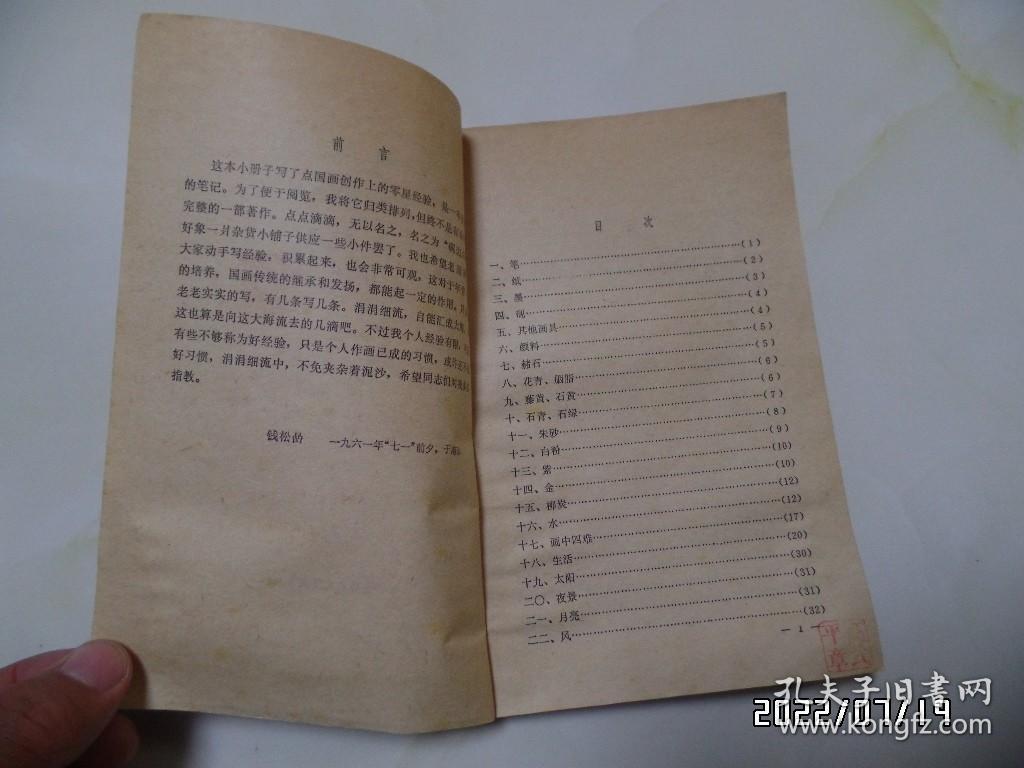 前言
这本小册子写了点国画创作上的零星经验，是一
的笔记。为了便于阅览，我将它归类排列，但终不是
完整的一部著作。点点滴滴，无以名之，名之为“
好象一爿杂货小铺子供应一些小件罢了。我也希望老
大家动手写经验，积累起来，也会非常可观，这对于年
的培养，国画传统的继承和发扬，都能起一定的作用，
老老实实的写，有几条写几条。涓涓细流，自能汇成大
这也算是向这大海流去的几滴吧。不过我个人经验有限，
有些不够称为好经验，只是个人作画已成的习惯，或
好习惯，涓涓细流中，不免夹杂着泥沙，希望同志们
指教。
钱松喦 一九六一年“七一”前夕，于
目次
一、笔……(1)
二、纸……(2)
三、墨……(3)
四、砚……(4)
五、其他画具……(4)
六、颜料……(5)
七、赭石……(5)
八、花青、胭脂……(6)
九、藤黄、石黄……(6)
十、石青、石绿……(7)
十一、朱砂……(8)
十二、白粉……(9)
十三、紫……(10)
十四、金……(10)
十五、柳炭……(12)
十六、水……(12)
十七、画中四难……(17)
十八、生活……(20)
十九、太阳……(30)
二〇、夜景……(31)
二一、月亮……(31)
二二、风……(32)
— 1 —
孔夫子旧書网
www.kongfz.com
2022/07/19